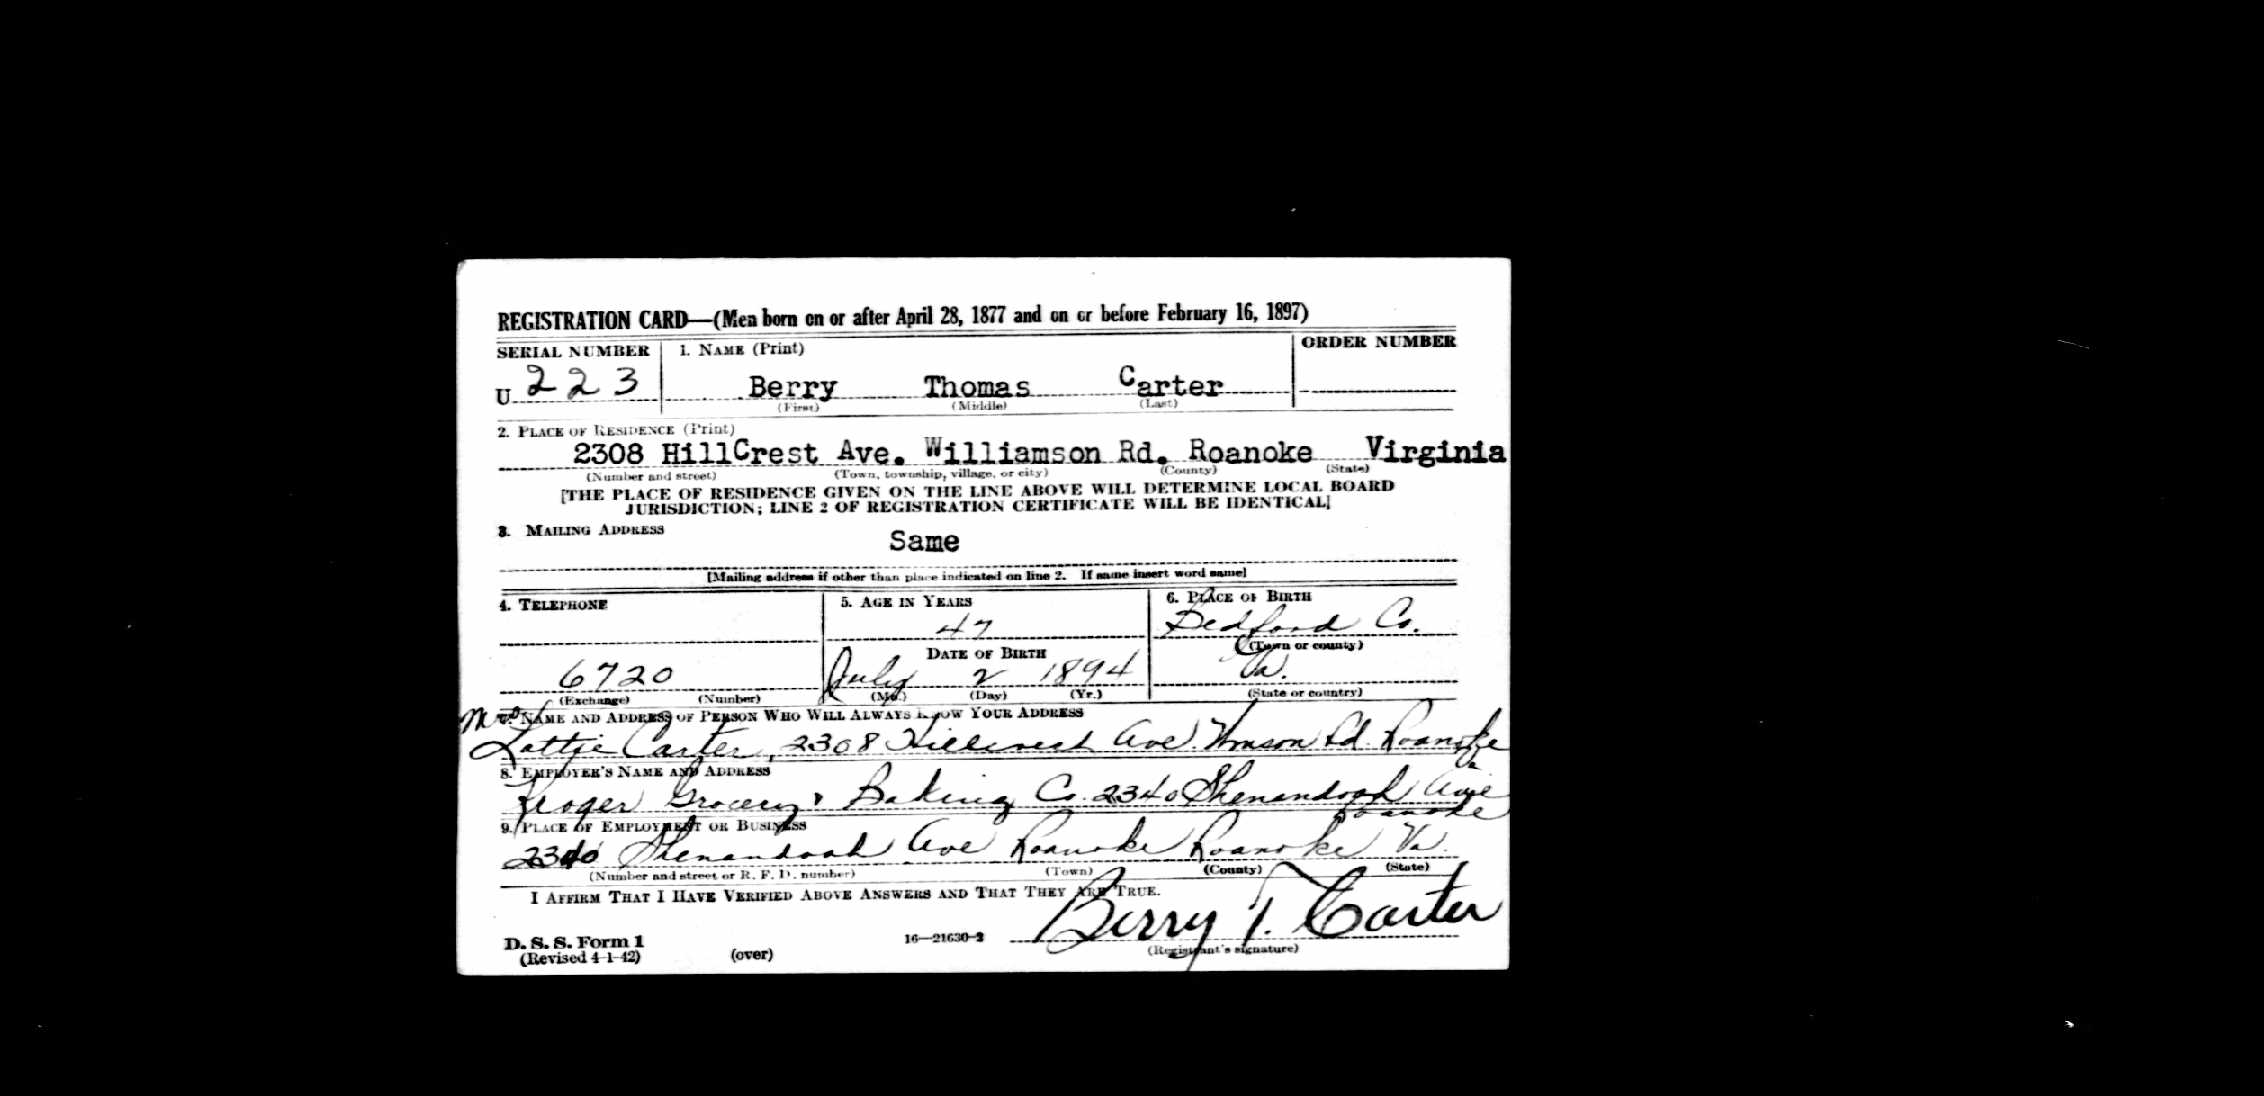 REGISTRATION CARD—(Men born on or after April 28, 1877 and on or before February 16, 1897)
SERIAL NUMBER 1. NAME (Print) ORDER NUMBER
U 223 Berry Thomas Carter
(First) (Middle) (Last)
2. PLACE OF RESIDENCE (Print)
2308 HillCrest Ave. Williamson Rd. Roanoke Virginia
(Number and street) (Town, township, village, or city) (County) (State)
[THE PLACE OF RESIDENCE GIVEN ON THE LINE ABOVE WILL DETERMINE LOCAL BOARD
JURISDICTION; LINE 2 OF REGISTRATION CERTIFICATE WILL BE IDENTICAL]
3. MAILING ADDRESS
Same
[Mailing address if other than place indicated on line 2. If same insert word same]
4. TELEPHONE 5. AGE IN YEARS 6. PLACE OF BIRTH
47 Bedford Co.
DATE OF BIRTH (Town or county)
6720 July 2 1894 Va.
(Exchange) (Number) (Mo.) (Day) (Yr.) (State or country)
7. NAME AND ADDRESS OF PERSON WHO WILL ALWAYS KNOW YOUR ADDRESS
Mrs Lottie Carter, 2308 Hillcrest Ave. Wmson Rd. Roanoke Va
8. EMPLOYER'S NAME AND ADDRESS
Kroger Grocery & Baking Co. 2340 Shenandoah Ave
Roanoke
9. PLACE OF EMPLOYMENT OR BUSINESS
2340 Shenandoah Ave Roanoke Roanoke Va.
(Number and street or R. F. D. number) (Town) (County) (State)
I AFFIRM THAT I HAVE VERIFIED ABOVE ANSWERS AND THAT THEY ARE TRUE.
Berry T. Carter
D. S. S. Form 1
(Revised 4-1-42) (over) 16—21630-2 (Registrant's signature)